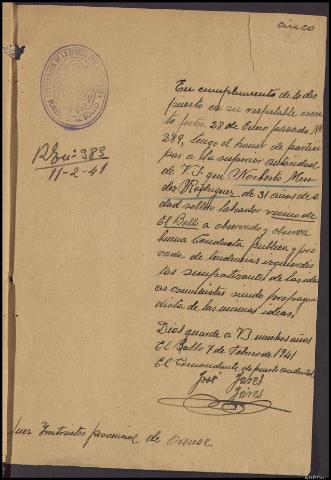 cinco
En cumplimiento de lo dis
puesto en su respetable escri
to fecha 28 de Enero pasado Nº
289, tengo el honor de partici
par a la superior autoridad
de V.I. que Norberto Men
dez Rodriguez de 31 años de e
dad soltero labrador vecino de
El Bollo a observado y observa
buena Conducta publica y pri
vada de tendencias izquierdis
tas simpatizantes de las ide
as comunistas siendo propagan
dista de las mismas ideas.
Dios guarde a V.I. muchos años
El Bollo 7 de Febrero de 1941
El Comandante de puesto
José Jares
Jares
383
11-2-41
Juez Instructor provincial de Orense